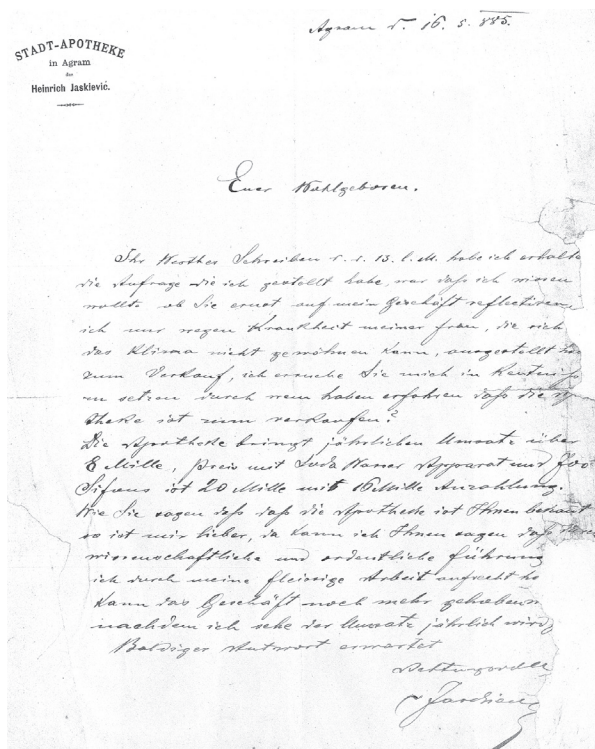 Agram d. 16. 5. 885.
STADT-APOTHEKE
in Agram
des
Heinrich Jaskiević.
Euer Wohlgeboren.
Ihr Werthes Schreiben v. d. 13. l. M. habe ich erhalte
die Anfrage die ich gestellt habe, war daß ich wissen
wollte ob Sie ernst auf mein Geschäft reflectiren,
ich nur wegen Krankheit meiner Frau, die sich
das Klima nicht gewöhnen kann, ausgestellt
zum Verkauf, ich ersuche Sie mich in Kentniß
zu setzen durch wem haben erfahren daß die
theke ist zum verkaufen?
Die Apotheke bringt jährlichen Umsatz über
8 Mille, Preis mit Soda Wasser Apparat und 700
Sifons ist 20 Mille mit 16 Mille Anzahlung.
Wie Sie sagen daß daß die Apotheke ist Ihnen bekant
so ist mir lieber, da kann ich Ihnen sagen daß
wissenschaftliche und ordentliche führung
ich durch meine fleissige Arbeit aufrecht
kann das Geschäft noch mehr gehoben
nachdem ich sehe der Umsatz jährlich wird
Baldiger Antwort erwartet